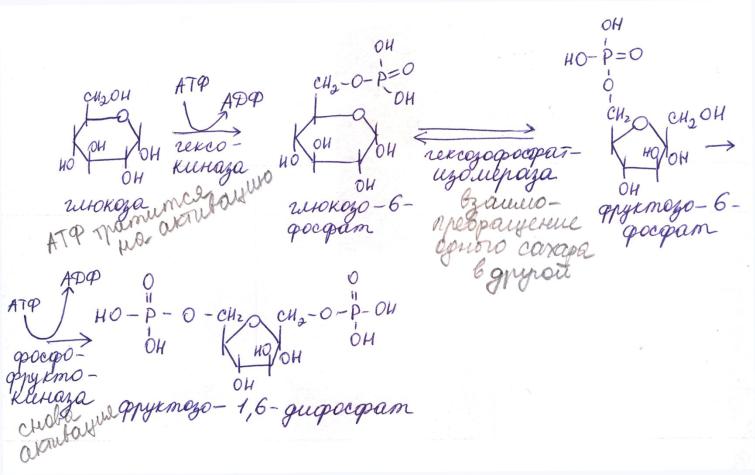 CH₂OH
O
OH
HO
OH
OH
глюкоза
АТФ тратится
на активацию
АТФ
АДФ
гексо-
киназа
OH
CH₂-O-P=O
OH
O
OH
HO
OH
OH
глюкозо-6-
фосфат
гексозофосфат-
изомераза
взаимо-
превращение
одного сахара
в другой
OH
HO-P=O
O
CH₂
O
CH₂OH
HO
OH
OH
фруктозо-6-
фосфат
АТФ
АДФ
фосфо-
фрукто-
киназа
снова
активация
O
HO-P-O-CH₂
OH
O
O
CH₂-O-P-OH
OH
HO
OH
OH
фруктозо-1,6-дифосфат